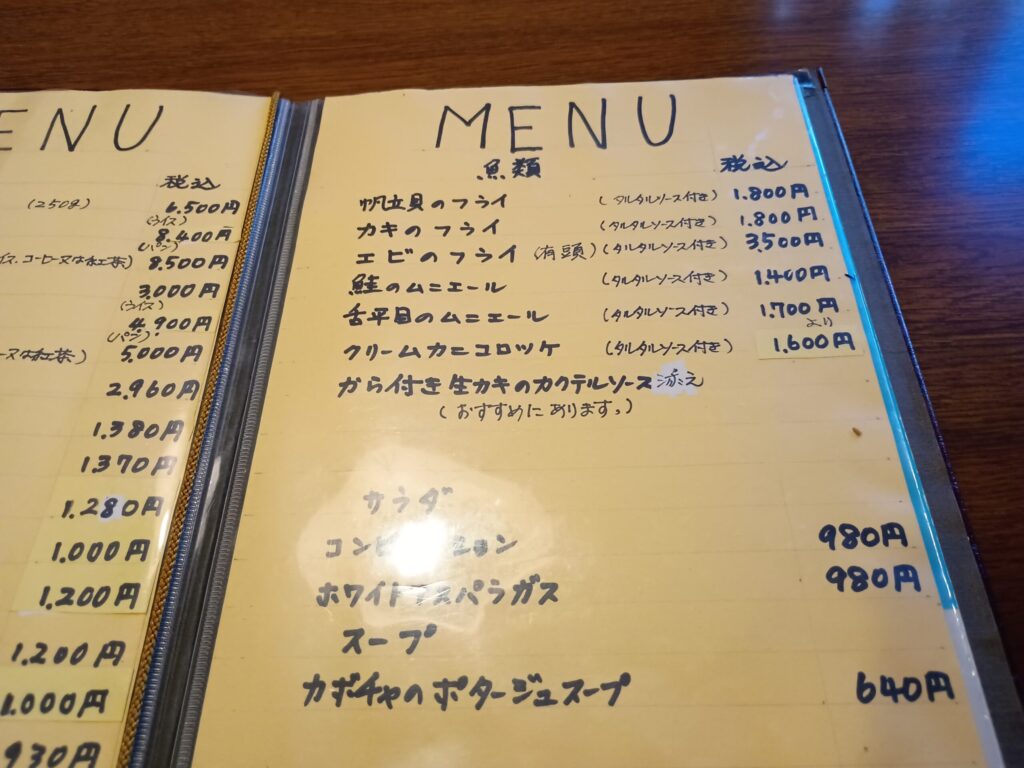 ENU
税込
(250g) 6.500円
(ライス)
8.400円
(パン)
イス、コーヒー又は紅茶) 8.500円
3.000円
(ライス)
4.900円
(パン)
ー又は紅茶) 5.000円
2.960円
1.380円
1.370円
1.280円
1.000円
1.200円
1.200円
1.000円
930円
MENU
魚類 税込
帆立貝のフライ (タルタルソース付き) 1.800円
カキのフライ (タルタルソース付き) 1.800円
エビのフライ (有頭) (タルタルソース付き) 3,500円
鮭のムニエール (タルタルソース付き) 1.400円
舌平目のムニエール (タルタルソース付き) 1.700円
より
クリームカニコロッケ (タルタルソース付き) 1.600円
から付き生カキのカクテルソース添え
(おすすめにあります。)
サラダ
コンビネーション 980円
ホワイトアスパラガス 980円
スープ
カボチャのポタージュスープ 640円